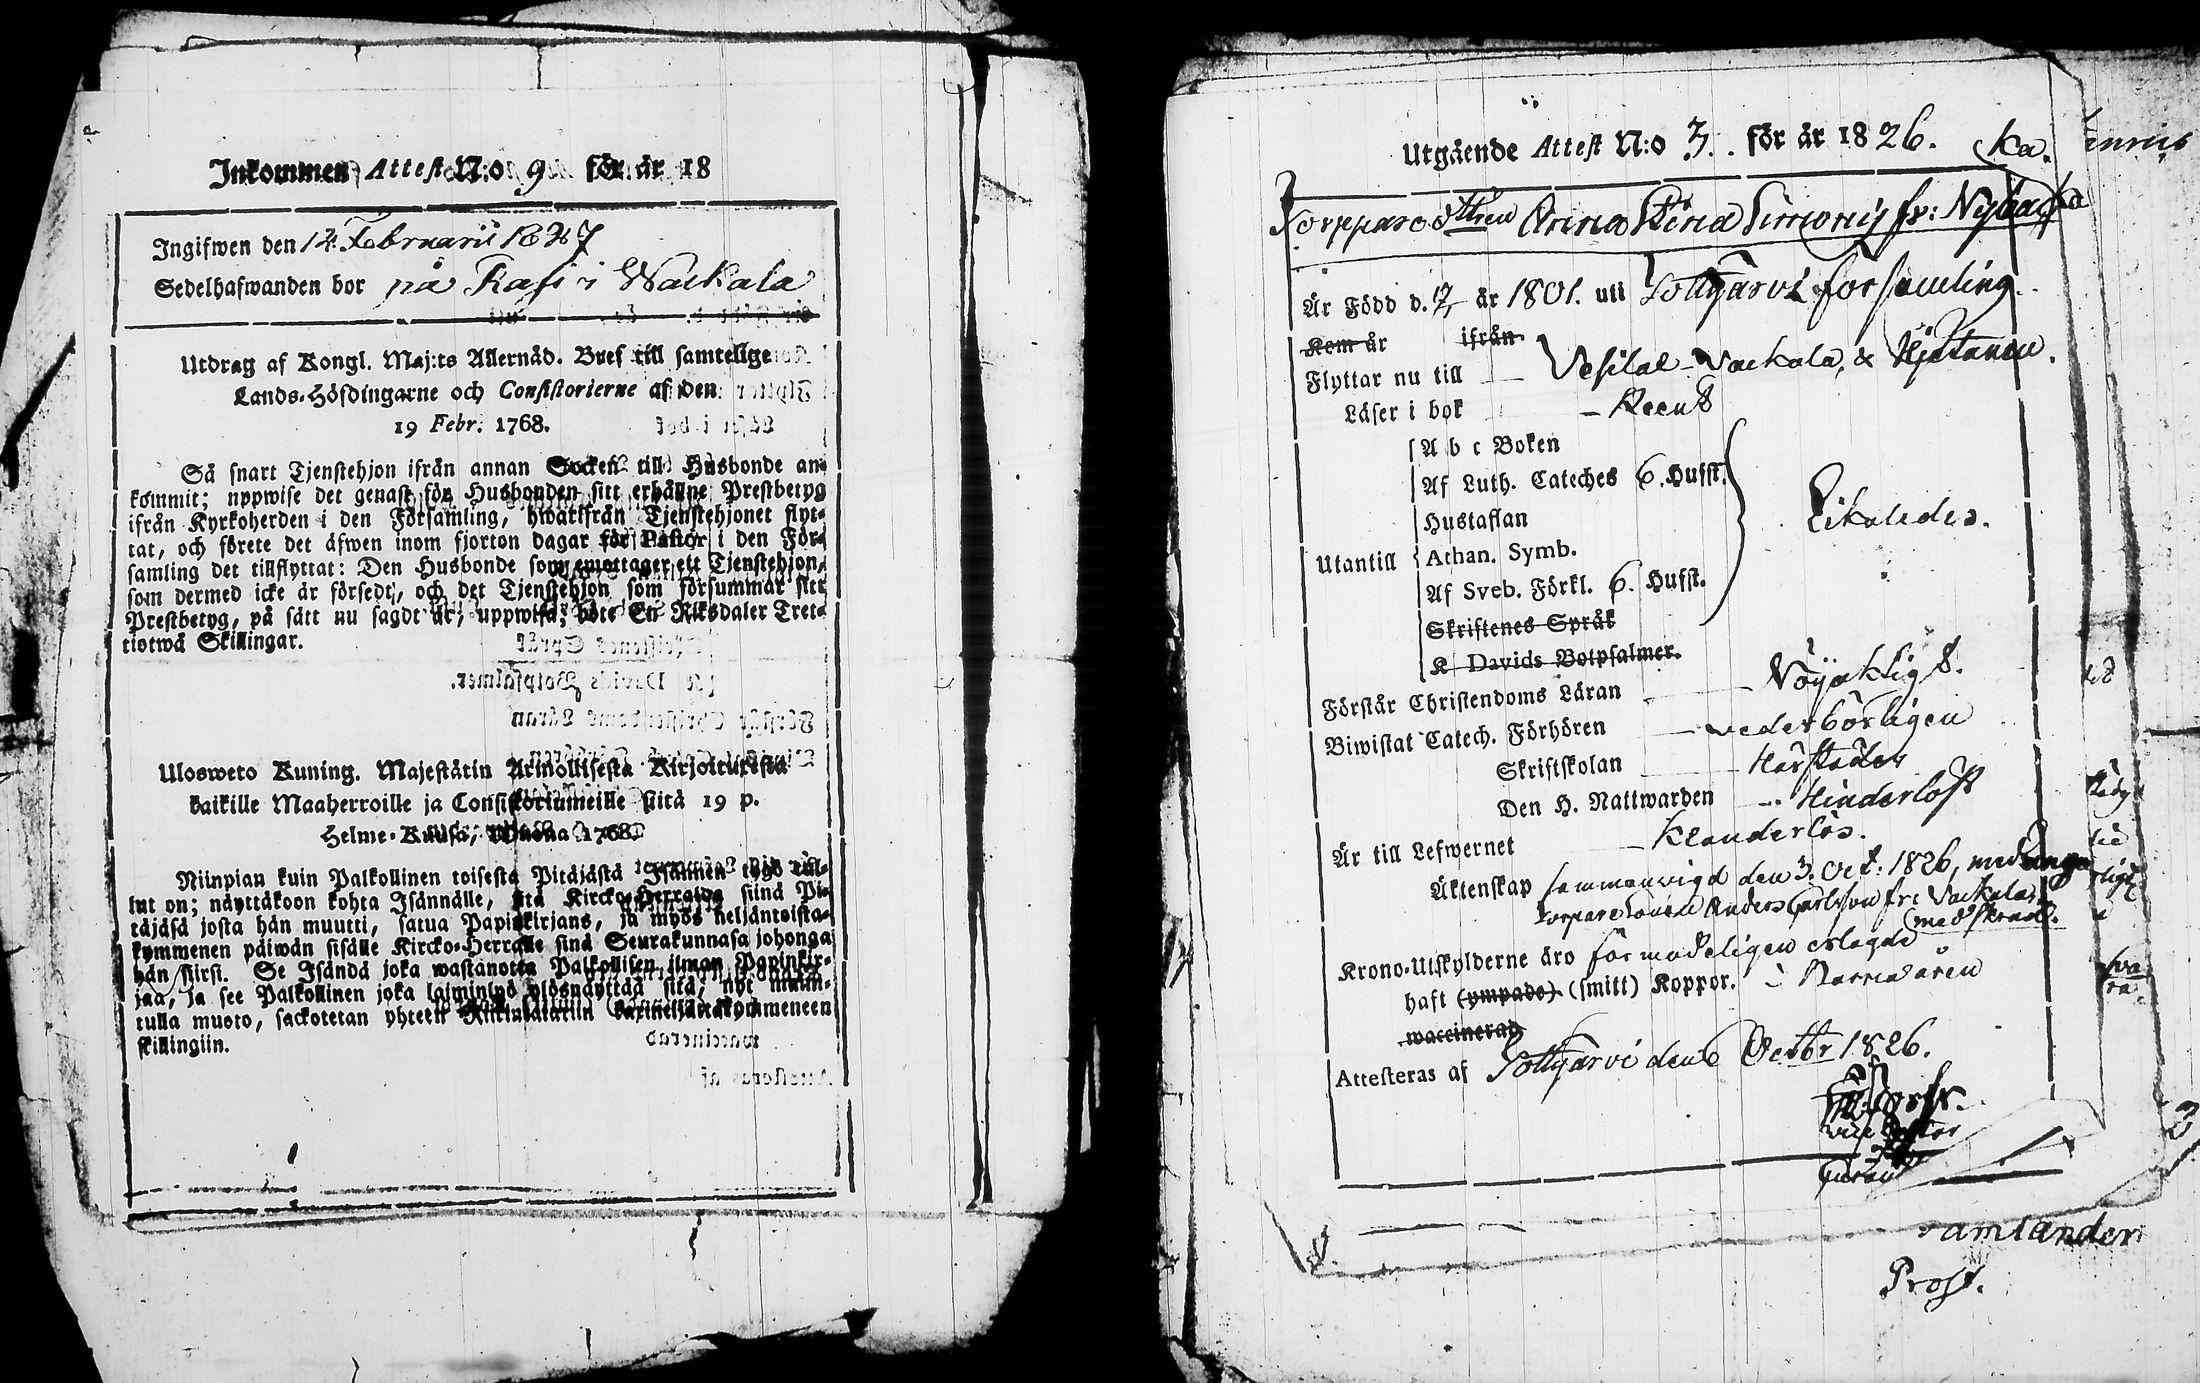 Inkommen Attest N:o 9 för år 18
Ingifwen den 14 Februarii 1827
Sedelhafwanden bor på Rasi i Wackala
Utdrag af Kongl. Maj:ts Allernåd. Bref till samtelige
Lands-Höfdingarne och Consistorierne af den
19 Febr. 1768.
Så snart Tjenstehjon ifrån annan Socken till Husbonde an-
kommit; uppwise det genast för Husbonden sitt erhållne Prestbetyg
ifrån Kyrkoherden i den Församling, hwarifrån Tjenstehjonet flyt-
tat, och förete det äfwen inom fjorton dagar för Pastor i den För-
samling det tillflyttat: Den Husbonde som emottager ett Tjenstehjon,
som dermed icke är försedt, och det Tjenstehjon som försummar sitt
Prestbetyg, på sätt nu sagdt är, uppwisa; böte En Riksdaler Tret-
tiotwå Skillingar.
Ulosweto Kuning. Majestätin Armollisesta Kirjoituxesta
kaikille Maaherroille ja Consistoriumeille siitä 19 p.
Helme-Kuusa, Wuona 1768.
Niinpian kuin Palkollinen toisesta Pitäjästä Isännen tygö tul-
lut on; näyttäkoon kohta Isännälle, sitä Kircko-Herralda siinä Pi-
täjäsä josta hän muutti, saatua Papinkirjans, ja myös neljäntoista-
kymmenen päiwän sisälle Kircko-Herralle sinä Seurakunnasa johonga
hän siirsi. Se Isändä joka wastanotta Palkollisen ilman Papinkir-
jaa, ja see Palkollinen joka laiminlyö ylösnäyttää sitä, nyt main-
tulla muoto, sackotetan yhteen Rikintalariin kaxineljättäkymmeneen
skillingiin.
Utgående Attest N:o 3. för år 1826. Ka.
Torppare Anna Stina Simonis fr: Nybacka
Är Född d. 17 år 1801. uti Tottijärvi församling.
Kom år ifrån
Flyttar nu till Vesilax Vackala, &
Läser i bok Reent
A b c Boken
Af Luth. Cateches 6. Hufst.
Hustaflan
Utantill Athan. Symb. Likaledes.
Af Sveb. Förkl. 6. Hufst.
Skriftenes Språk
K Davids Botpsalmer.
Förstår Christendoms Läran Nöjaktigt.
Biwistat Catech. Förhören vederbörligen
Skriftskolan
Den H. Nattwarden Hinderlöst
Är till Lefwernet Klanderlös.
Äktenskap sammanvigd den 3. Oct. 1826, med unga
Torparesonen Anders Carlsson fr: Vackala,
Krono-Utskylderne äro förmodeligen erlagde
haft (ympade) (smitt) Koppor. i Barnaåren
waccinerad
Attesteras af Tottijärvi den 6 Octbr 1826.
Prost.